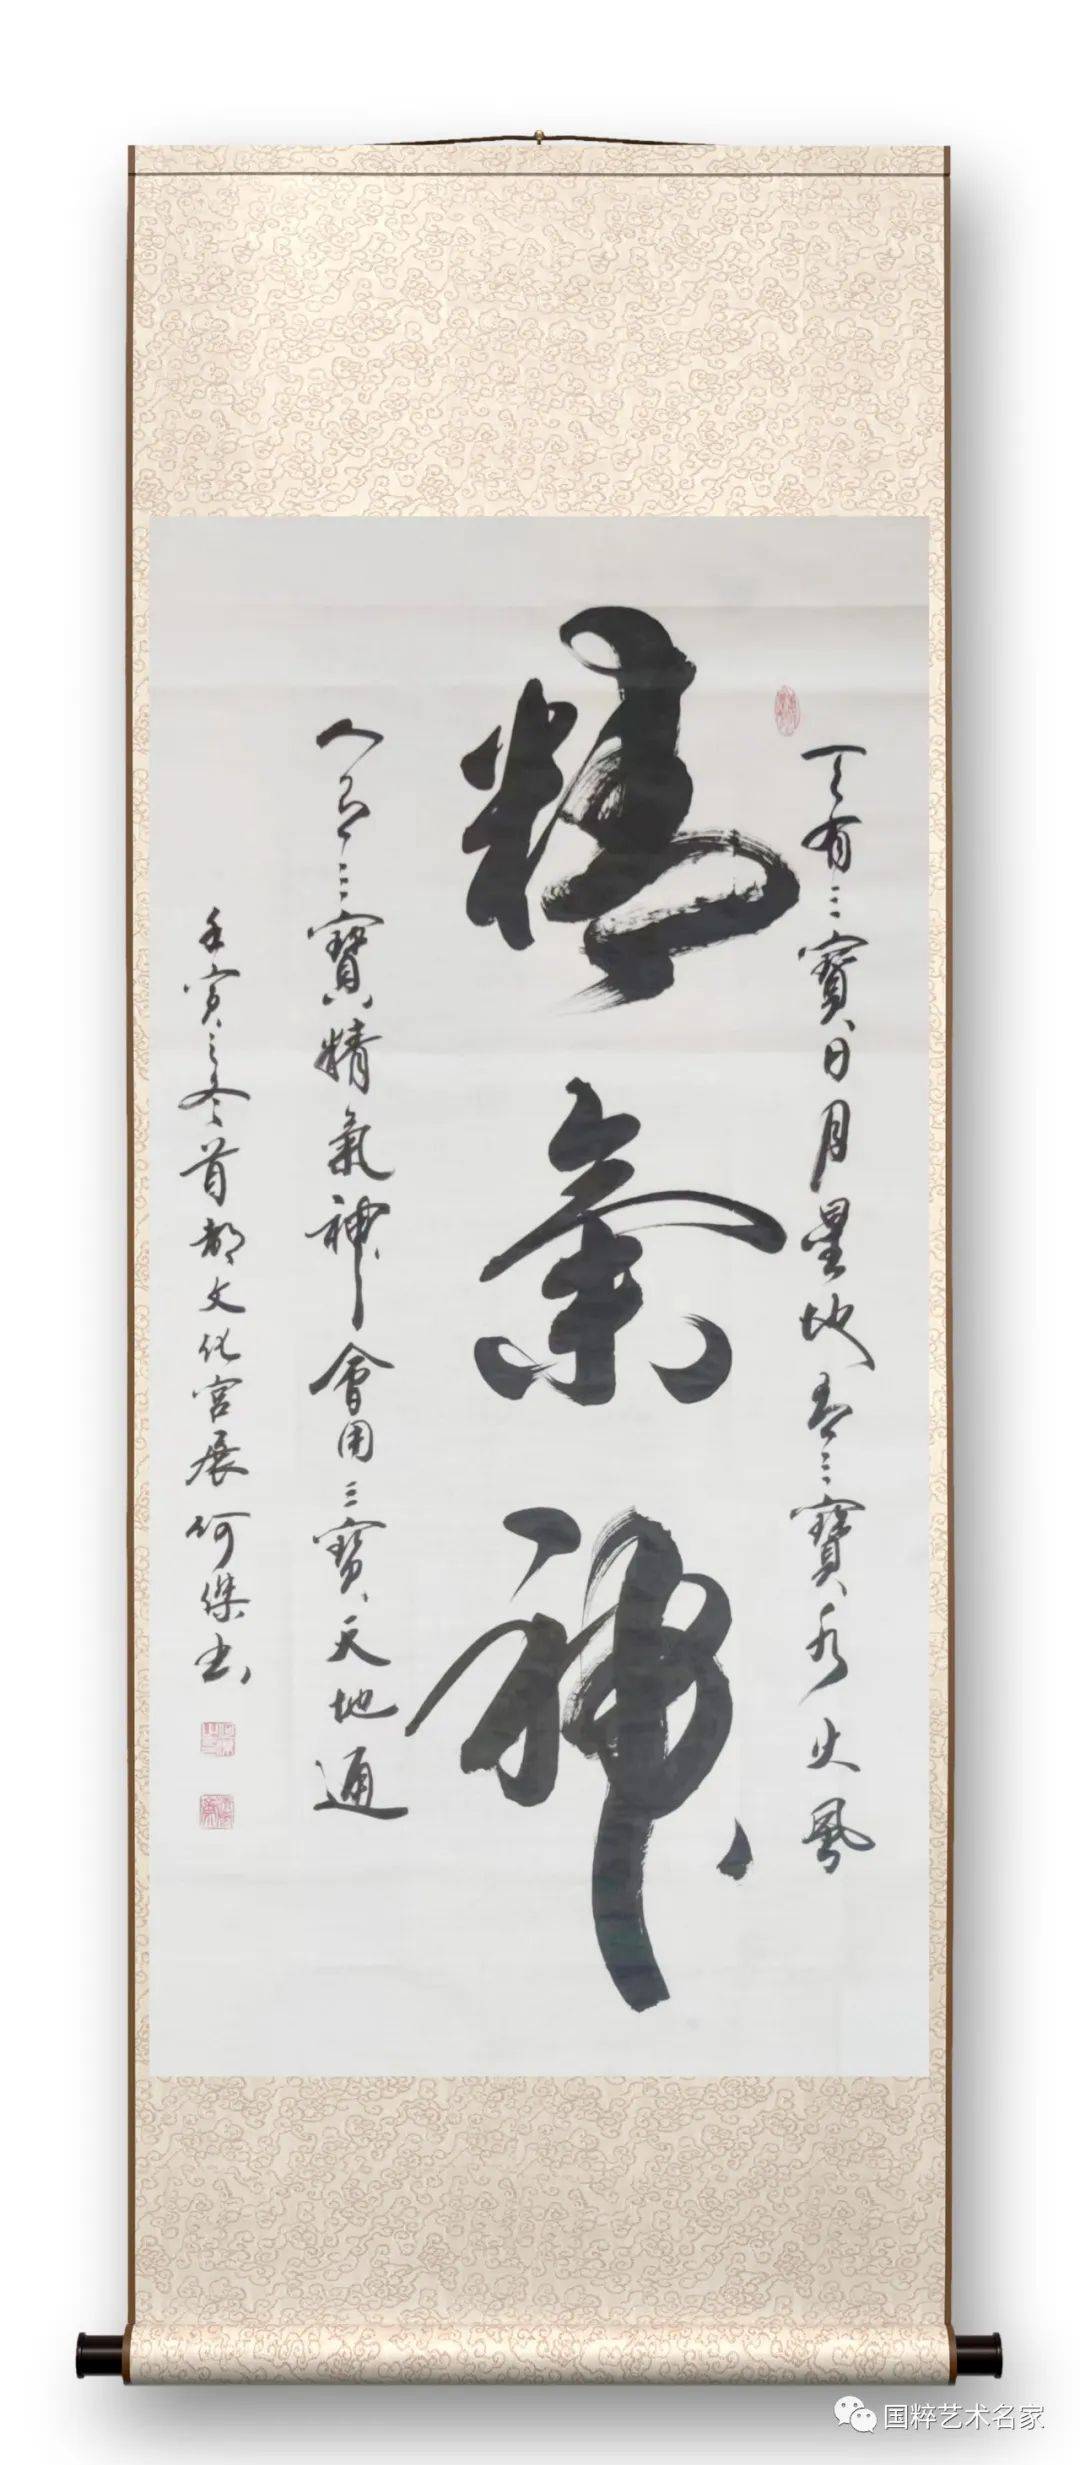 天有三寶日月星地有三寶水火風
精氣神
人有三寶精氣神會用三寶天地通
壬寅之冬首都文化宮展何傑书
国粹艺术名家